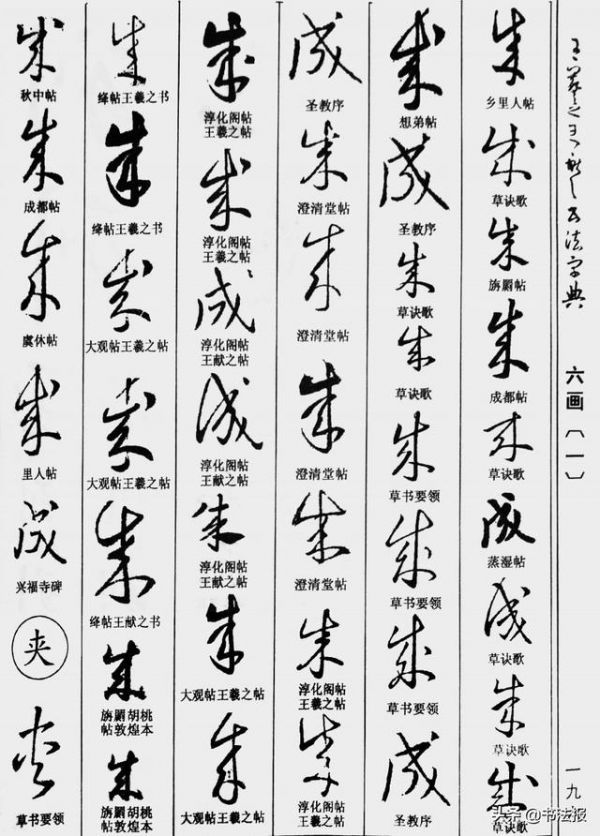 王羲之王献之书法字典
六画〔一〕
一九
成
乡里人帖
成
草诀歌
成
旃罽帖
成
成都帖
成
草诀歌
成
蒸湿帖
成
草诀歌
成
草诀歌
成
草诀歌
成
想弟帖
成
圣教序
成
草诀歌
成
草诀歌
成
草书要领
成
草书要领
成
草书要领
成
圣教序
成
圣教序
成
澄清堂帖
成
澄清堂帖
成
澄清堂帖
成
澄清堂帖
成
淳化阁帖
王羲之帖
成
淳化阁帖
王羲之帖
成
淳化阁帖
王羲之帖
成
淳化阁帖
王羲之帖
成
淳化阁帖
王献之帖
成
淳化阁帖
王献之帖
成
淳化阁帖
王献之帖
成
大观帖王羲之帖
成
大观帖王羲之帖
成
绛帖王羲之书
成
绛帖王羲之书
成
大观帖王羲之帖
成
大观帖王羲之帖
成
绛帖王献之书
成
旃罽胡桃
帖敦煌本
成
旃罽胡桃
帖敦煌本
成
秋中帖
成
成都帖
成
虞休帖
成
里人帖
成
兴福寺碑
夹
夹
草书要领
头条 @书法报